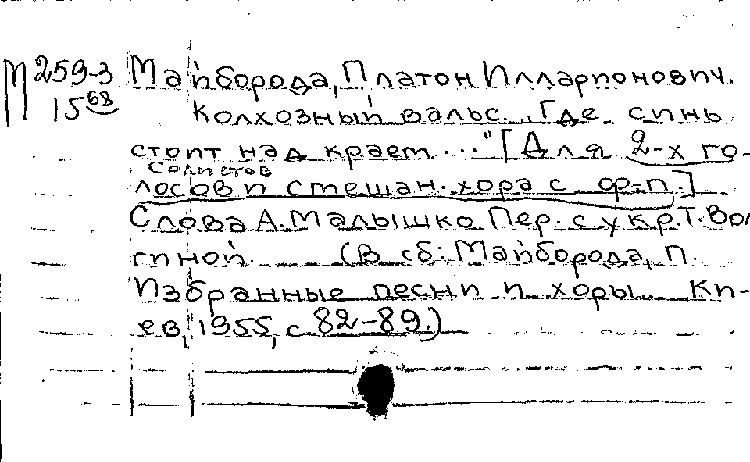 М 259-3 Майборода, Платон Илларионович.
15 68 Колхозный вальс „Где синь
стоит над краем..." [Для 2-х го-
солистов
лосов и смешан. хора с ф-п.]
Слова А. Малышко Пер. с укр. Т. Вол
гиной (В сб: Майборода, П.
Избранные песни и хоры Ки-
ев, 1955, с 82-89.)